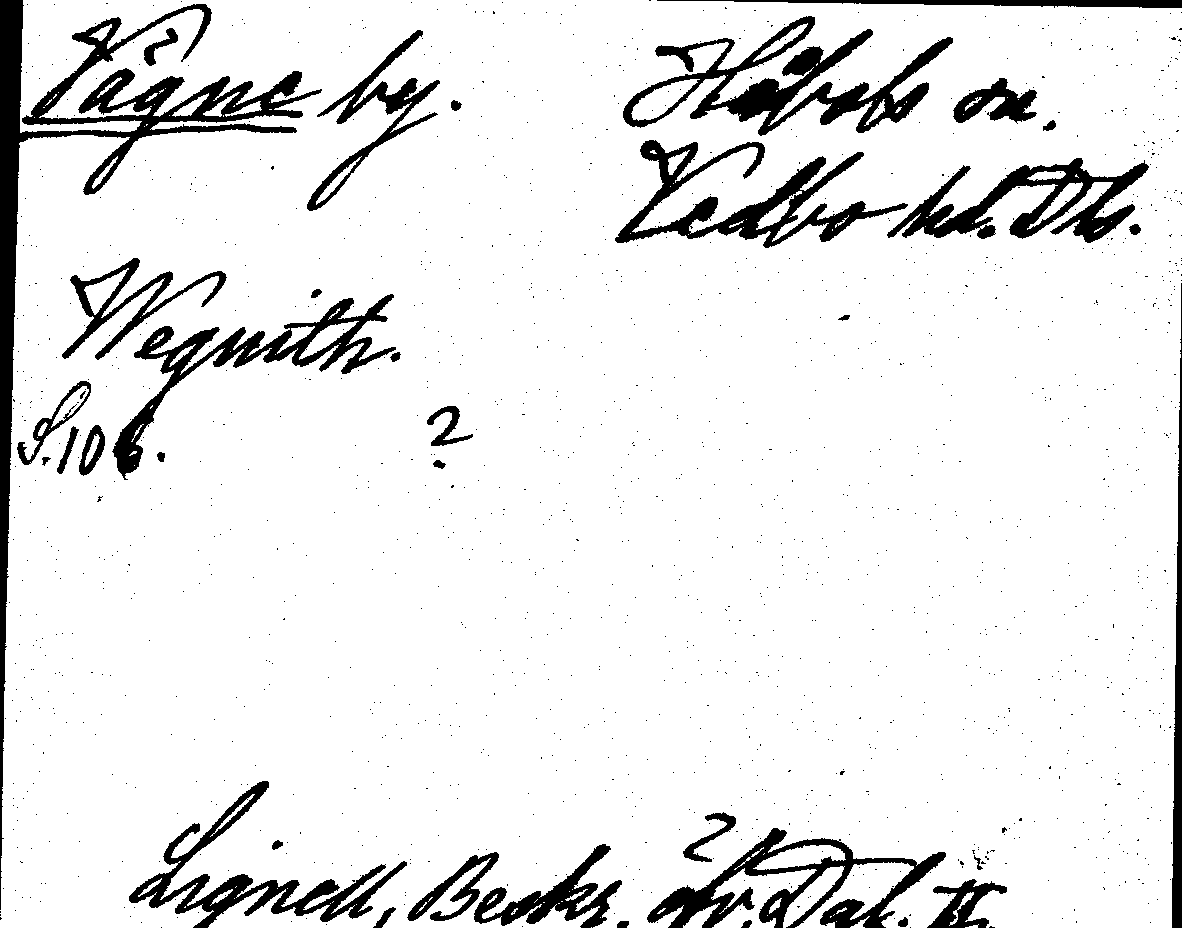 Vägne by.
Håbols sn.
Vedbo hd. Dls.
Wegnith.
S. 106. ?
Lignell, Beskr. öfv. Dal. II.